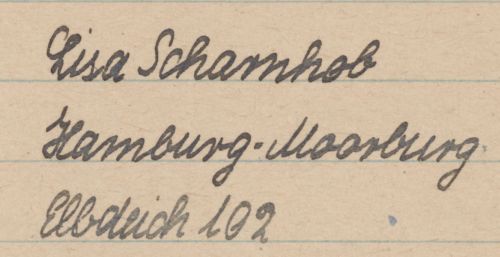 Lisa Scharnhob
Hamburg-Moorburg
Elbdeich 102